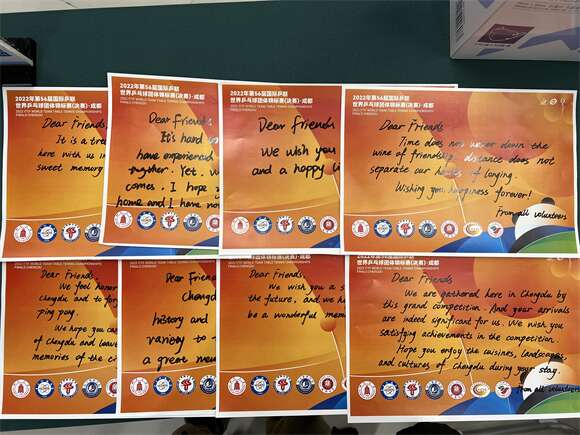 2022年第56届国际乒联
世界乒乓球团体锦标赛(决赛)·成都
2022 ITTF WORLD TEAM TABLE TENNIS CHAMPIONSHIPS
FINALS CHENGDU
Dear Friends,
It is a
here with us in
sweet memory
2022年第56届国际乒联
世界乒乓球团体锦标赛(决赛)·成都
2022 ITTF WORLD TEAM TABLE TENNIS CHAMPIONSHIPS
FINALS CHENGDU
Dear friends
It's hard
have experienced
together. Yet.
comes. I hope
home and I have
2022年第56届国际乒联
世界乒乓球团体锦标赛(决赛)·成都
2022 ITTF WORLD TEAM TABLE TENNIS CHAMPIONSHIPS
FINALS CHENGDU
Dear friend
We wish you
and a happy
2022年第56届国际乒联
世界乒乓球团体锦标赛(决赛)·成都
2022 ITTF WORLD TEAM TABLE TENNIS CHAMPIONSHIPS
FINALS CHENGDU
Dear Friends:
Time does not down the
wine of friendship, distance does not
separate our of longing.
Wishing you happiness forever!
From all volunteers
Dear Friends,
We feel honor
Chengdu and to
ping pong.
We hope you can
of Chengdu and leave
memories of the
Dear Friend
Chengd
history and
variety to
a great
Dear Friends,
We wish you a
the future, and we h
be a wonderful mem
FINALS CHENGDU
Dear Friends
We are gathered here in Chengdu by
this grand competition. And your arrivals
are indeed significant for us. We wish you
satisfying achievements in the competition.
Hope you enjoy the cuisines, landscapes
and cultures of Chengdu during your stay.
From all volunteers